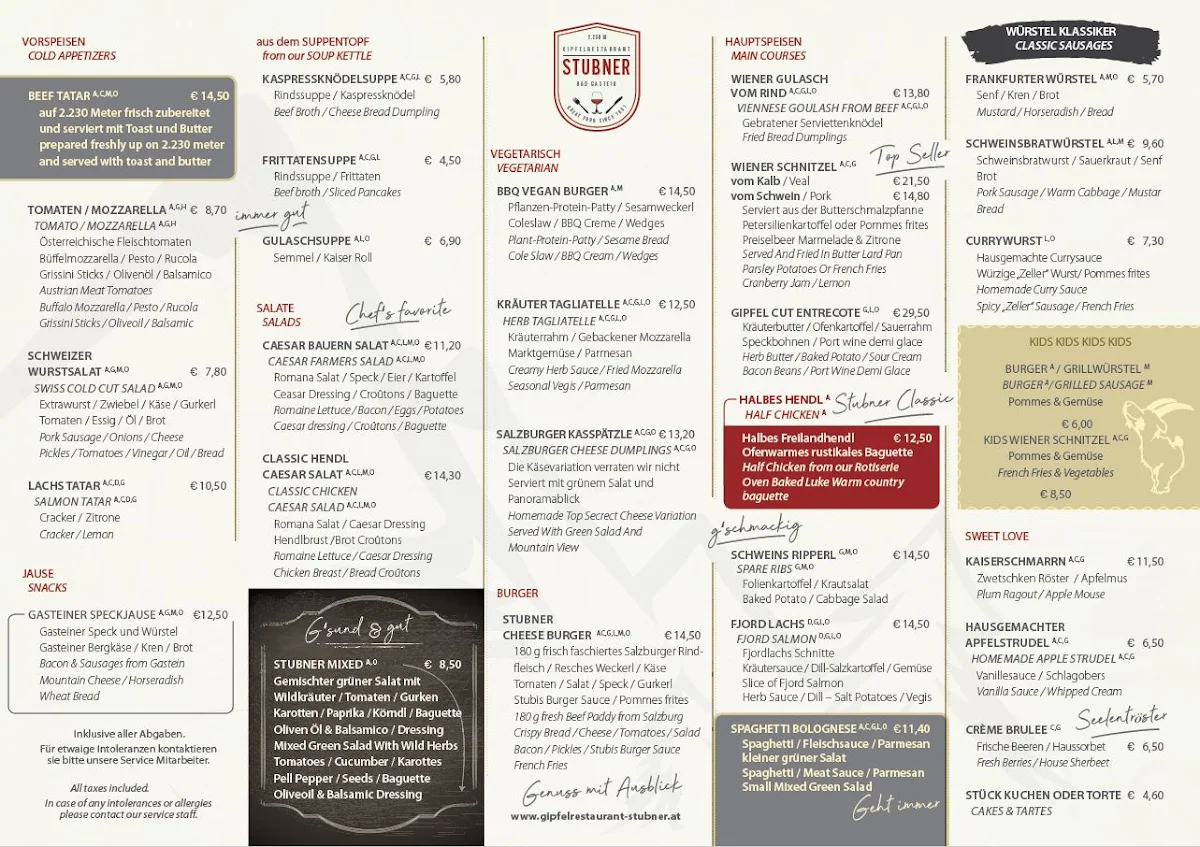 VORSPEISEN
COLD APPETIZERS
BEEF TATAR A,C,M,O € 14,50
auf 2.230 Meter frisch zubereitet
und serviert mit Toast und Butter
prepared freshly up on 2.230 meter
and served with toast and butter
TOMATEN / MOZZARELLA A,G,H € 8,70
TOMATO / MOZZARELLA A,G,H
Österreichische Fleischtomaten
Büffelmozzarella / Pesto / Rucola
Grissini Sticks / Olivenöl / Balsamico
Austrian Meat Tomatoes
Buffalo Mozzarella / Pesto / Rucola
Grissini Sticks / Oliveoil / Balsamic
SCHWEIZER
WURSTSALAT A,G,M,O € 7,80
SWISS COLD CUT SALAD A,G,M,O
Extrawurst / Zwiebel / Käse / Gurkerl
Tomaten / Essig / Öl / Brot
Pork Sausage / Onions / Cheese
Pickles / Tomatoes / Vinegar / Oil / Bread
LACHS TATAR A,C,D,G € 10,50
SALMON TATAR A,C,D,G
Cracker / Zitrone
Cracker / Lemon
JAUSE
SNACKS
GASTEINER SPECKJAUSE A,G,M,O €12,50
Gasteiner Speck und Würstel
Gasteiner Bergkäse / Kren / Brot
Bacon & Sausages from Gastein
Mountain Cheese / Horseradish
Wheat Bread
Inklusive aller Abgaben.
Für etwaige Intoleranzen kontaktieren
sie bitte unsere Service Mitarbeiter.
All taxes included.
In case of any intolerances or allergies
please contact our service staff.
aus dem SUPPENTOPF
from our SOUP KETTLE
KASPRESSKNÖDELSUPPE A,C,G,L € 5,80
Rindssuppe / Kaspressknödel
Beef Broth / Cheese Bread Dumpling
FRITTATENSUPPE A,C,G,L € 4,50
Rindssuppe / Frittaten
Beef broth / Sliced Pancakes
immer gut
GULASCHSUPPE A,L,O € 6,90
Semmel / Kaiser Roll
SALATE
SALADS
Chef's favorite
CAESAR BAUERN SALAT A,C,L,M,O €11,20
CAESAR FARMERS SALAD A,C,L,M,O
Romana Salat / Speck / Eier / Kartoffel
Ceasar Dressing / Croûtons / Baguette
Romaine Lettuce / Bacon / Eggs / Potatoes
Caesar dressing / Croûtons / Baguette
CLASSIC HENDL
CAESAR SALAT A,C,L,M,O €14,30
CLASSIC CHICKEN
CAESAR SALAD A,C,L,M,O
Romana Salat / Caesar Dressing
Hendlbrust /Brot Croûtons
Romaine Lettuce / Caesar Dressing
Chicken Breast / Bread Croûtons
G'sund & gut
STUBNER MIXED A,O € 8,50
Gemischter grüner Salat mit
Wildkräuter / Tomaten / Gurken
Karotten / Paprika / Körndl / Baguette
Oliven Öl & Balsamico / Dressing
Mixed Green Salad With Wild Herbs
Tomatoes / Cucumber / Karottes
Pell Pepper / Seeds / Baguette
Oliveoil & Balsamic Dressing
2.230 M
GIPFELRESTAURANT
STUBNER
BAD GASTEIN
GREAT FOOD SINCE 1951
VEGETARISCH
VEGETARIAN
BBQ VEGAN BURGER A,M € 14,50
Pflanzen-Protein-Patty / Sesamweckerl
Coleslaw / BBQ Creme / Wedges
Plant-Protein-Patty / Sesame Bread
Cole Slaw / BBQ Cream / Wedges
KRÄUTER TAGLIATELLE A,C,G,L,O € 12,50
HERB TAGLIATELLE A,C,G,L,O
Kräuterrahm / Gebackener Mozzarella
Marktgemüse / Parmesan
Creamy Herb Sauce / Fried Mozzarella
Seasonal Vegis / Parmesan
SALZBURGER KASSPÄTZLE A,C,G,O € 13,20
SALZBURGER CHEESE DUMPLINGS A,C,G,O
Die Käsevariation verraten wir nicht
Serviert mit grünem Salat und
Panoramablick
Homemade Top Secrect Cheese Variation
Served With Green Salad And
Mountain View
BURGER
STUBNER
CHEESE BURGER A,C,G,L,M,O € 14,50
180 g frisch faschiertes Salzburger Rind-
fleisch / Resches Weckerl / Käse
Tomaten / Salat / Speck / Gurkerl
Stubis Burger Sauce / Pommes frites
180 g fresh Beef Paddy from Salzburg
Crispy Bread / Cheese / Tomatoes / Salad
Bacon / Pickles / Stubis Burger Sauce
French Fries
Genuss mit Ausblick
www.gipfelrestaurant-stubner.at
HAUPTSPEISEN
MAIN COURSES
WIENER GULASCH
VOM RIND A,C,G,L,O € 13,80
VIENNESE GOULASH FROM BEEF A,C,G,L,O
Gebratener Serviettenknödel
Fried Bread Dumplings
Top Seller
WIENER SCHNITZEL A,C,G
vom Kalb / Veal € 21,50
vom Schwein / Pork € 14,80
Serviert aus der Butterschmalzpfanne
Petersilienkartoffel oder Pommes frites
Preiselbeer Marmelade & Zitrone
Served And Fried In Butter Lard Pan
Parsley Potatoes Or French Fries
Cranberry Jam / Lemon
GIPFEL CUT ENTRECOTE G,L,O € 29,50
Kräuterbutter / Ofenkartoffel / Sauerrahm
Speckbohnen / Port wine demi glace
Herb Butter / Baked Potato / Sour Cream
Bacon Beans / Port Wine Demi Glace
HALBES HENDL A
HALF CHICKEN A
Stubner Classic
Halbes Freilandhendl € 12,50
Ofenwarmes rustikales Baguette
Half Chicken from our Rotiserie
Oven Baked Luke Warm country
baguette
g'schmackig
SCHWEINS RIPPERL G,M,O € 14,50
SPARE RIBS G,M,O
Folienkartoffel / Krautsalat
Baked Potato / Cabbage Salad
FJORD LACHS D,G,L,O € 14,50
FJORD SALMON D,G,L,O
Fjordlachs Schnitte
Kräutersauce / Dill-Salzkartoffel / Gemüse
Slice of Fjord Salmon
Herb Sauce / Dill – Salt Potatoes / Vegis
SPAGHETTI BOLOGNESE A,C,G,L,O €11,40
Spaghetti / Fleischsauce / Parmesan
kleiner grüner Salat
Spaghetti / Meat Sauce / Parmesan
Small Mixed Green Salad
Geht immer
WÜRSTEL KLASSIKER
CLASSIC SAUSAGES
FRANKFURTER WÜRSTEL A,M,O € 5,70
Senf / Kren / Brot
Mustard / Horseradish / Bread
SCHWEINSBRATWÜRSTEL A,L,M € 9,60
Schweinsbratwurst / Sauerkraut / Senf
Brot
Pork Sausage / Warm Cabbage / Mustar
Bread
CURRYWURST L,O € 7,30
Hausgemachte Currysauce
Würzige „Zeller" Wurst / Pommes frites
Homemade Curry Sauce
Spicy „Zeller" Sausage / French Fries
KIDS KIDS KIDS KIDS
BURGER A / GRILLWÜRSTEL M
BURGER A / GRILLED SAUSAGE M
Pommes & Gemüse
€ 6,00
KIDS WIENER SCHNITZEL A,C,G
Pommes & Gemüse
French Fries & Vegetables
€ 8,50
SWEET LOVE
KAISERSCHMARRN A,C,G € 11,50
Zwetschken Röster / Apfelmus
Plum Ragout / Apple Mouse
HAUSGEMACHTER
APFELSTRUDEL A,C,G € 6,50
HOMEMADE APPLE STRUDEL A,C,G
Vanillesauce / Schlagobers
Vanilla Sauce / Whipped Cream
Seelentröster
CRÈME BRULEE C,G
Frische Beeren / Haussorbet € 6,50
Fresh Berries / House Sherbet
STÜCK KUCHEN ODER TORTE € 4,60
CAKES & TARTES